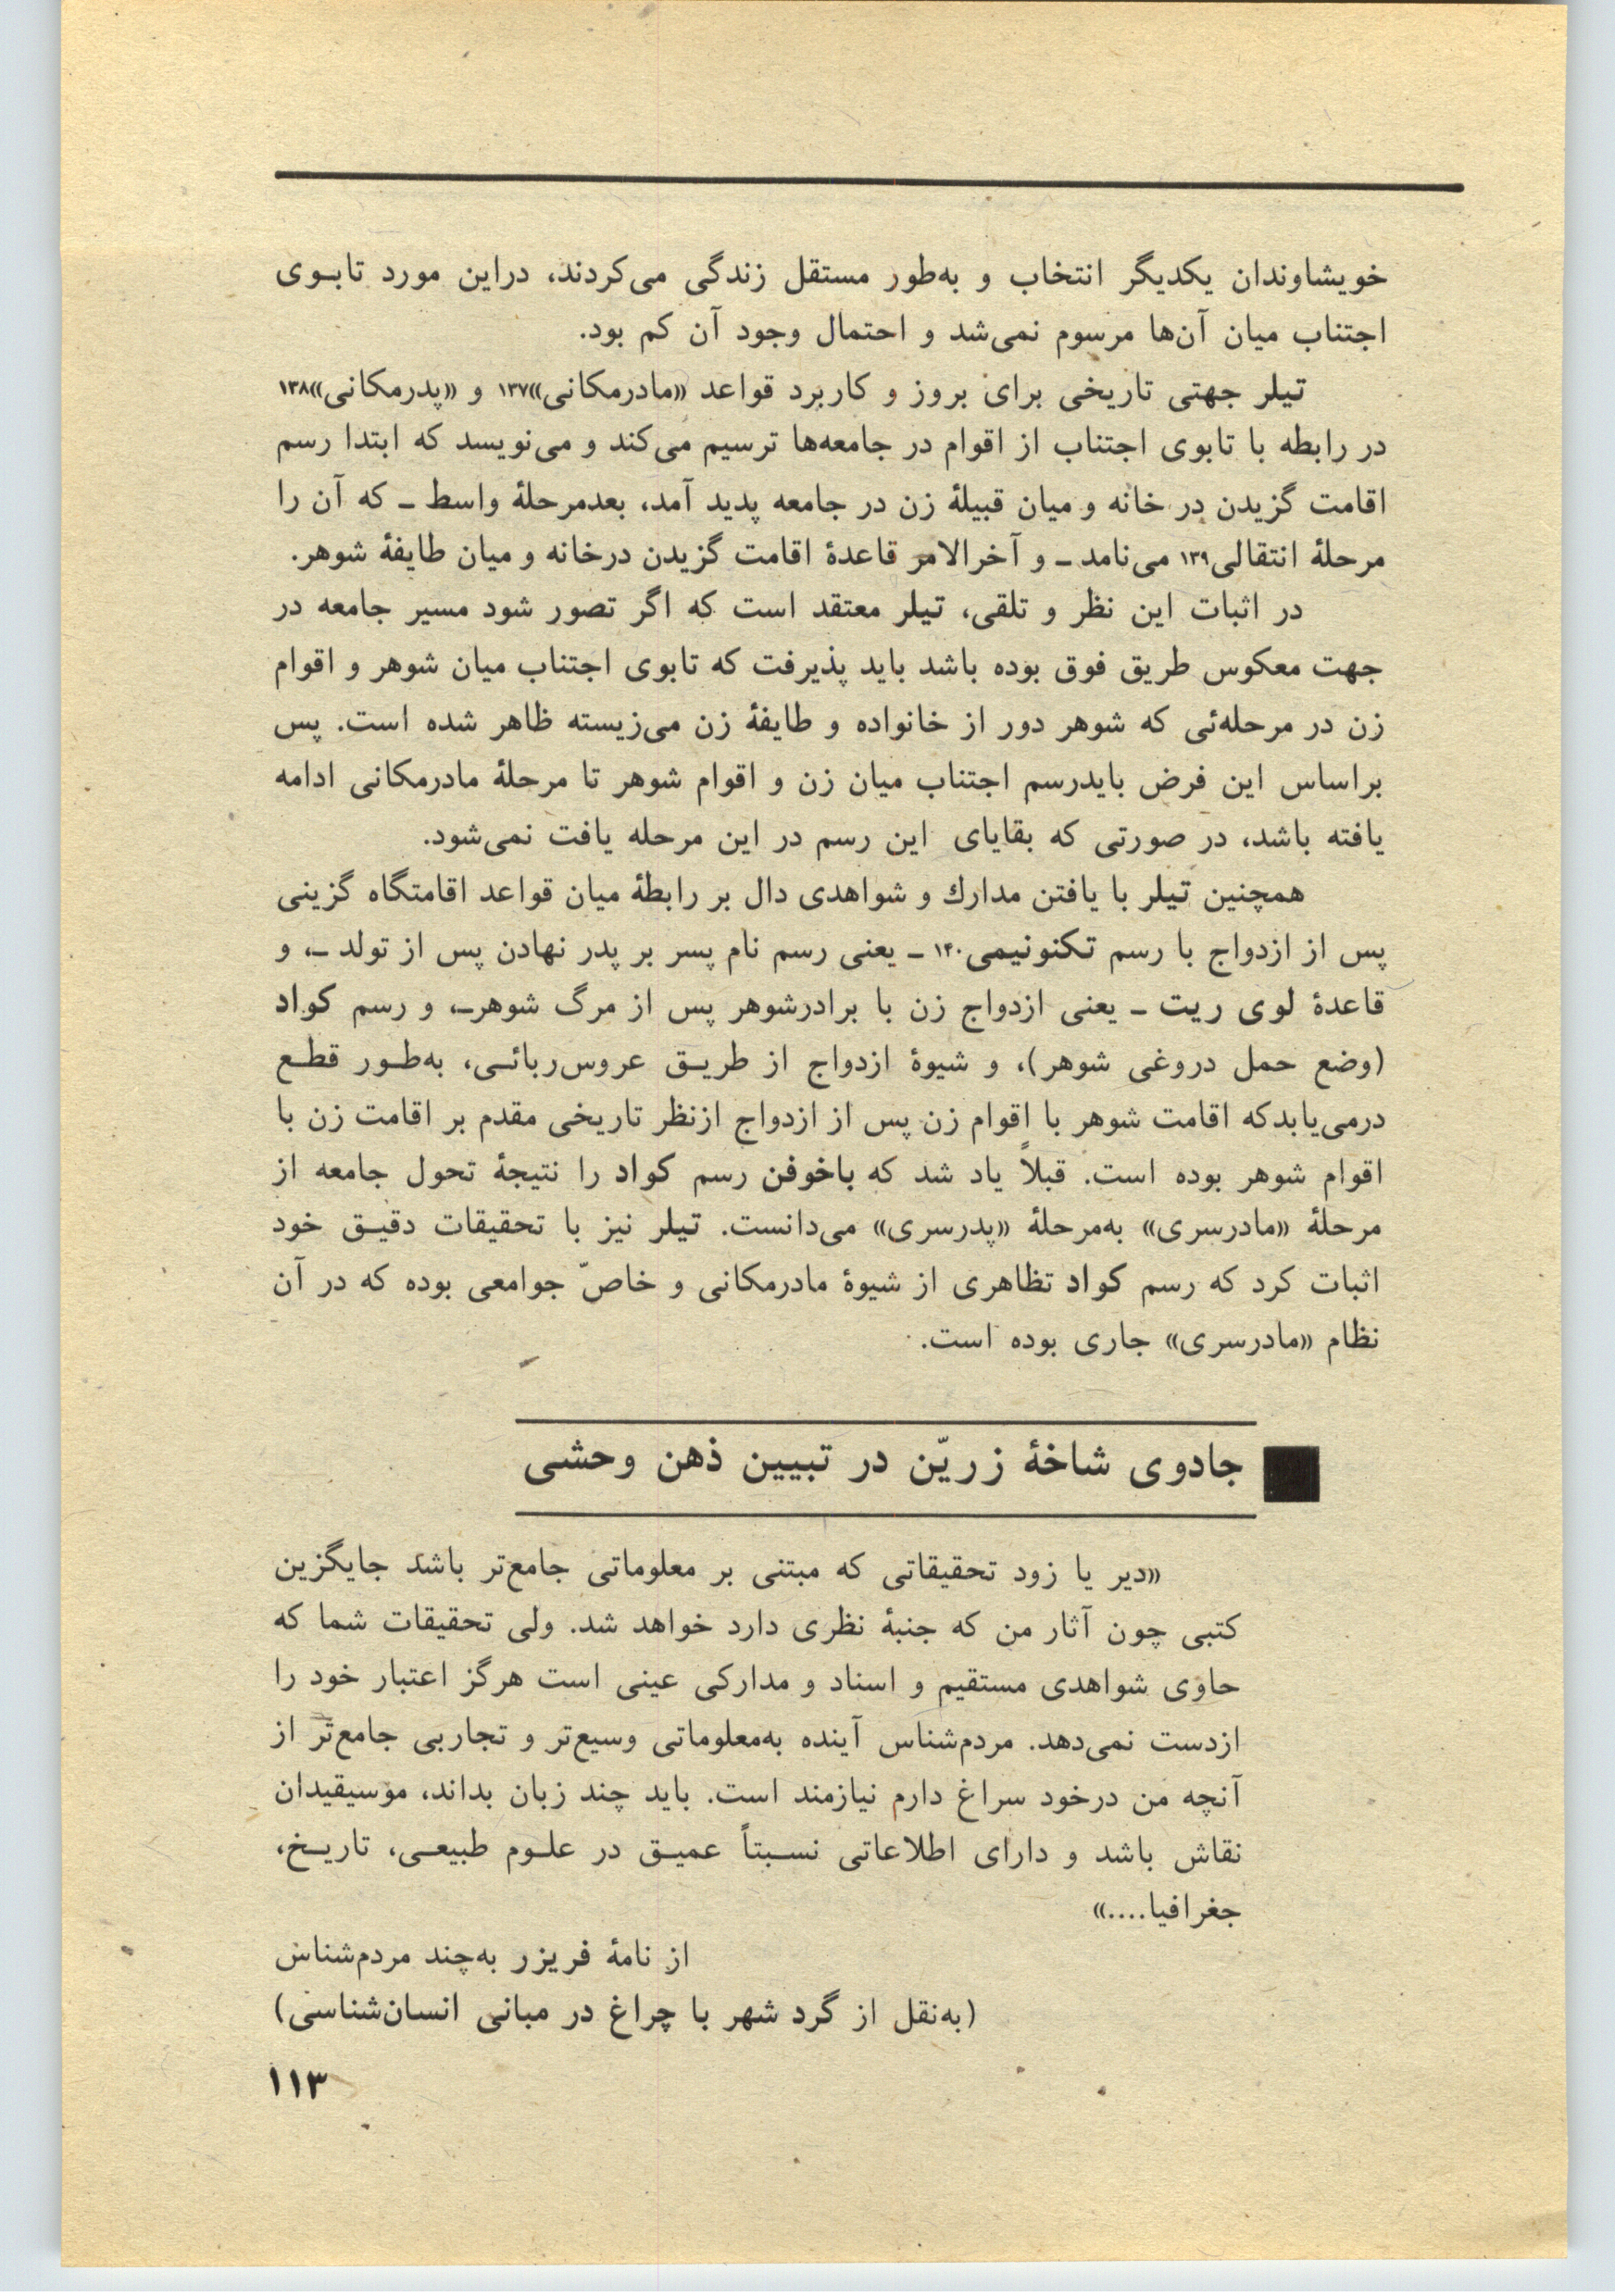 خویشاوندان یکدیگر انتخاب و به‌طور مستقل زندگی می‌کردند، دراین مورد تابـوی
اجتناب میان آن‌ها مرسوم نمی‌شد و احتمال وجود آن کم بود.
تیلر جهتی تاریخی برای بروز و کاربرد قواعد «مادرمکانی»۱۳۷ و «پدرمکانی»۱۳۸
در رابطه با تابوی اجتناب از اقوام در جامعه‌ها ترسیم می‌کند و می‌نویسد که ابتدا رسم
اقامت گزیدن در خانه و میان قبیلهٔ زن در جامعه پدید آمد، بعدمرحلهٔ واسط ـ که آن را
مرحلهٔ انتقالی۱۳۹ می‌نامد ـ و آخرالامر قاعدهٔ اقامت گزیدن درخانه و میان طایفهٔ شوهر.
در اثبات این نظر و تلقی، تیلر معتقد است که اگر تصور شود مسیر جامعه در
جهت معکوس طریق فوق بوده باشد باید پذیرفت که تابوی اجتناب میان شوهر و اقوام
زن در مرحله‌ئی که شوهر دور از خانواده و طایفهٔ زن می‌زیسته ظاهر شده است. پس
براساس این فرض بایدرسم اجتناب میان زن و اقوام شوهر تا مرحلهٔ مادرمکانی ادامه
یافته باشد، در صورتی که بقایای این رسم در این مرحله یافت نمی‌شود.
همچنین تیلر با یافتن مدارك و شواهدی دال بر رابطهٔ میان قواعد اقامتگاه گزینی
پس از ازدواج با رسم تکنونیمی۱۴۰ ـ یعنی رسم نام پسر بر پدر نهادن پس از تولد ـ، و
قاعدهٔ لوی ریت ـ یعنی ازدواج زن با برادرشوهر پس از مرگ شوهرـ، و رسم کواد
(وضع حمل دروغی شوهر)، و شیوهٔ ازدواج از طریـق عروس‌ربائـی، به‌طـور قطـع
درمی‌یابدکه اقامت شوهر با اقوام زن پس از ازدواج ازنظر تاریخی مقدم بر اقامت زن با
اقوام شوهر بوده است. قبلاً یاد شد که باخوفن رسم کواد را نتیجهٔ تحول جامعه از
مرحلهٔ «مادرسری» به‌مرحلهٔ «پدرسری» می‌دانست. تیلر نیز با تحقیقات دقیـق خود
اثبات کرد که رسم کواد تظاهری از شیوهٔ مادرمکانی و خاصّ جوامعی بوده که در آن
نظام «مادرسری» جاری بوده است.
جادوی شاخهٔ زریّن در تبیین ذهن وحشی
«دیر یا زود تحقیقاتی که مبتنی بر معلوماتی جامع‌تر باشد جایگزین
کتبی چون آثار من که جنبهٔ نظری دارد خواهد شد. ولی تحقیقات شما که
حاوی شواهدی مستقیم و اسناد و مدارکی عینی است هرگز اعتبار خود را
ازدست نمی‌دهد. مردم‌شناس آینده به‌معلوماتی وسیع‌تر و تجاربی جامع‌تر از
آنچه من درخود سراغ دارم نیازمند است. باید چند زبان بداند، موسیقیدان
نقاش باشد و دارای اطلاعاتی نسـبتاً عمیـق در علـوم طبیعـی، تاریـخ،
جغرافیا....»
از نامهٔ فریزر به‌چند مردم‌شناس
(به‌نقل از گرد شهر با چراغ در مبانی انسان‌شناسی)
۱۱۳